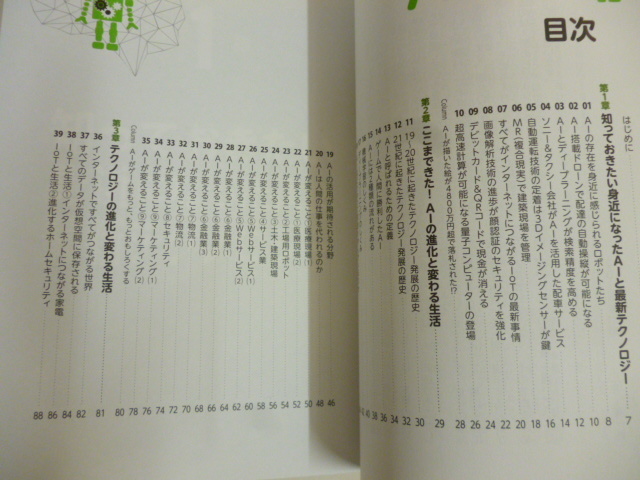 目次
はじめに
第1章 知っておきたい身近になったAIと最新テクノロジー 7
01 AIの存在を身近に感じられるロボットたち 8
02 AI搭載ドローンで配達の自動操縦が可能になる 10
03 AIとディープラーニングが検索精度を高める 12
04 ソニー&タクシー会社がAIを活用した配車サービス 14
05 自動運転技術の定着は3Dイメージングセンサーが鍵 16
06 MR(複合現実)で建築現場を管理 18
07 すべてがインターネットにつながるIOTの最新事情 20
08 画像解析技術の進歩が顔認証のセキュリティを強化 22
09 デビットカード&QRコードで現金が消える 24
10 超高速計算が可能になる量子コンピューターの登場 26
Column AIが描いた絵が4800万円超で落札された!? 28
第2章 ここまできた!AIの進化と変わる生活 29
11 19〜20世紀に起きたテクノロジー発展の歴史 30
12 21世紀に起きたテクノロジー発展の歴史 32
13 AIと呼ばれるための定義 34
14 ゲームで人間に勝利したAI 36
15 AIには2種類の流れがある 38
19 AIの活用が期待される分野 46
20 AIは人間の仕事を代われるのか 48
21 AIが変えること①医療現場(1) 50
22 AIが変えること①医療現場(2) 52
23 AIが変えること②工場用ロボット 54
24 AIが変えること③土木・建築現場 56
25 AIが変えること④サービス業 58
26 AIが変えること⑤Webサービス(1) 60
27 AIが変えること⑤Webサービス(2) 62
28 AIが変えること⑥金融業(1) 64
29 AIが変えること⑥金融業(2) 66
30 AIが変えること⑥金融業(3) 68
31 AIが変えること⑦物流(1) 70
32 AIが変えること⑦物流(2) 72
33 AIが変えること⑧セキュリティ 74
34 AIが変えること⑨マーケティング(1) 76
35 AIが変えること⑨マーケティング(2) 78
Column AIがゲームをもっと、もっとおもしろくする 80
第3章 テクノロジーの進化と変わる生活 81
36 インターネットですべてがつながる世界 82
37 すべてのデータが仮想空間に保存される 84
38 IOTと生活①インターネットにつながる家電 86
39 IOTと生活②進化するホームセキュリティ 88